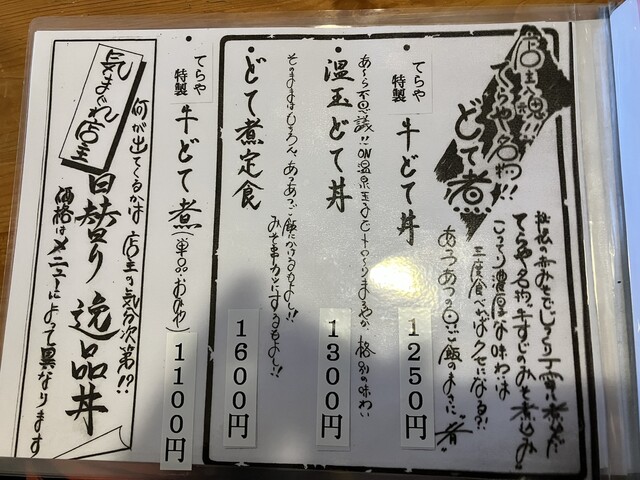 店主入魂!!
てらや名物!!
どて煮
秘伝の赤みそでじっくり丁寧に煮込んだ
てらや名物"牛すじのみそ煮込み"
こってり濃厚な味わは
三度食べればクセになる?!
あつあつの白ご飯のまえに"煮"
・てらや特製 牛どて丼 1250円
あ〜ら不思議!!ON温泉玉子で
まろやか、格別の味わい
・温玉どて丼 1300円
・どて煮定食 1600円
そのままはもちろん、あつあつご飯にかけるもよし!!
みそ串カツにするもよし!!
・てらや特製 牛どて煮(単品・おみや) 1100円
気まぐれ店主
日替り逸品丼
何が出てくるかは店主の気分次第!?
価格はメニューによって異なります